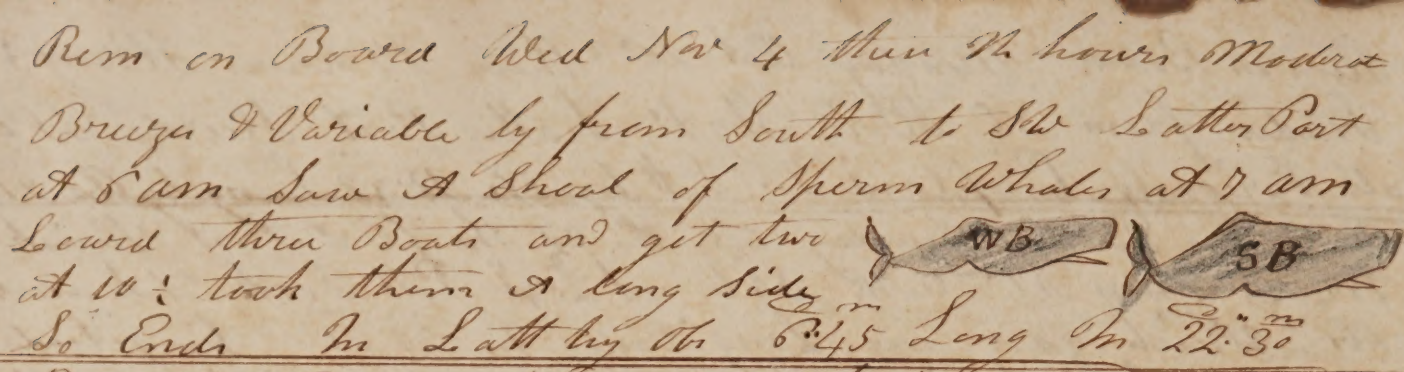 Rem on Board Wed Nov 4 thes 24 hours Moderat
Breezes & Variable by from South to SW Latter Part
at 6 am Saw A Shoal of Sperm Whales at 7 am
Loard three Boats and get two WB SB
at 10 ½ took them A long Side
So Ends In Latt by Obs 6°:45m Long In 22°:30m